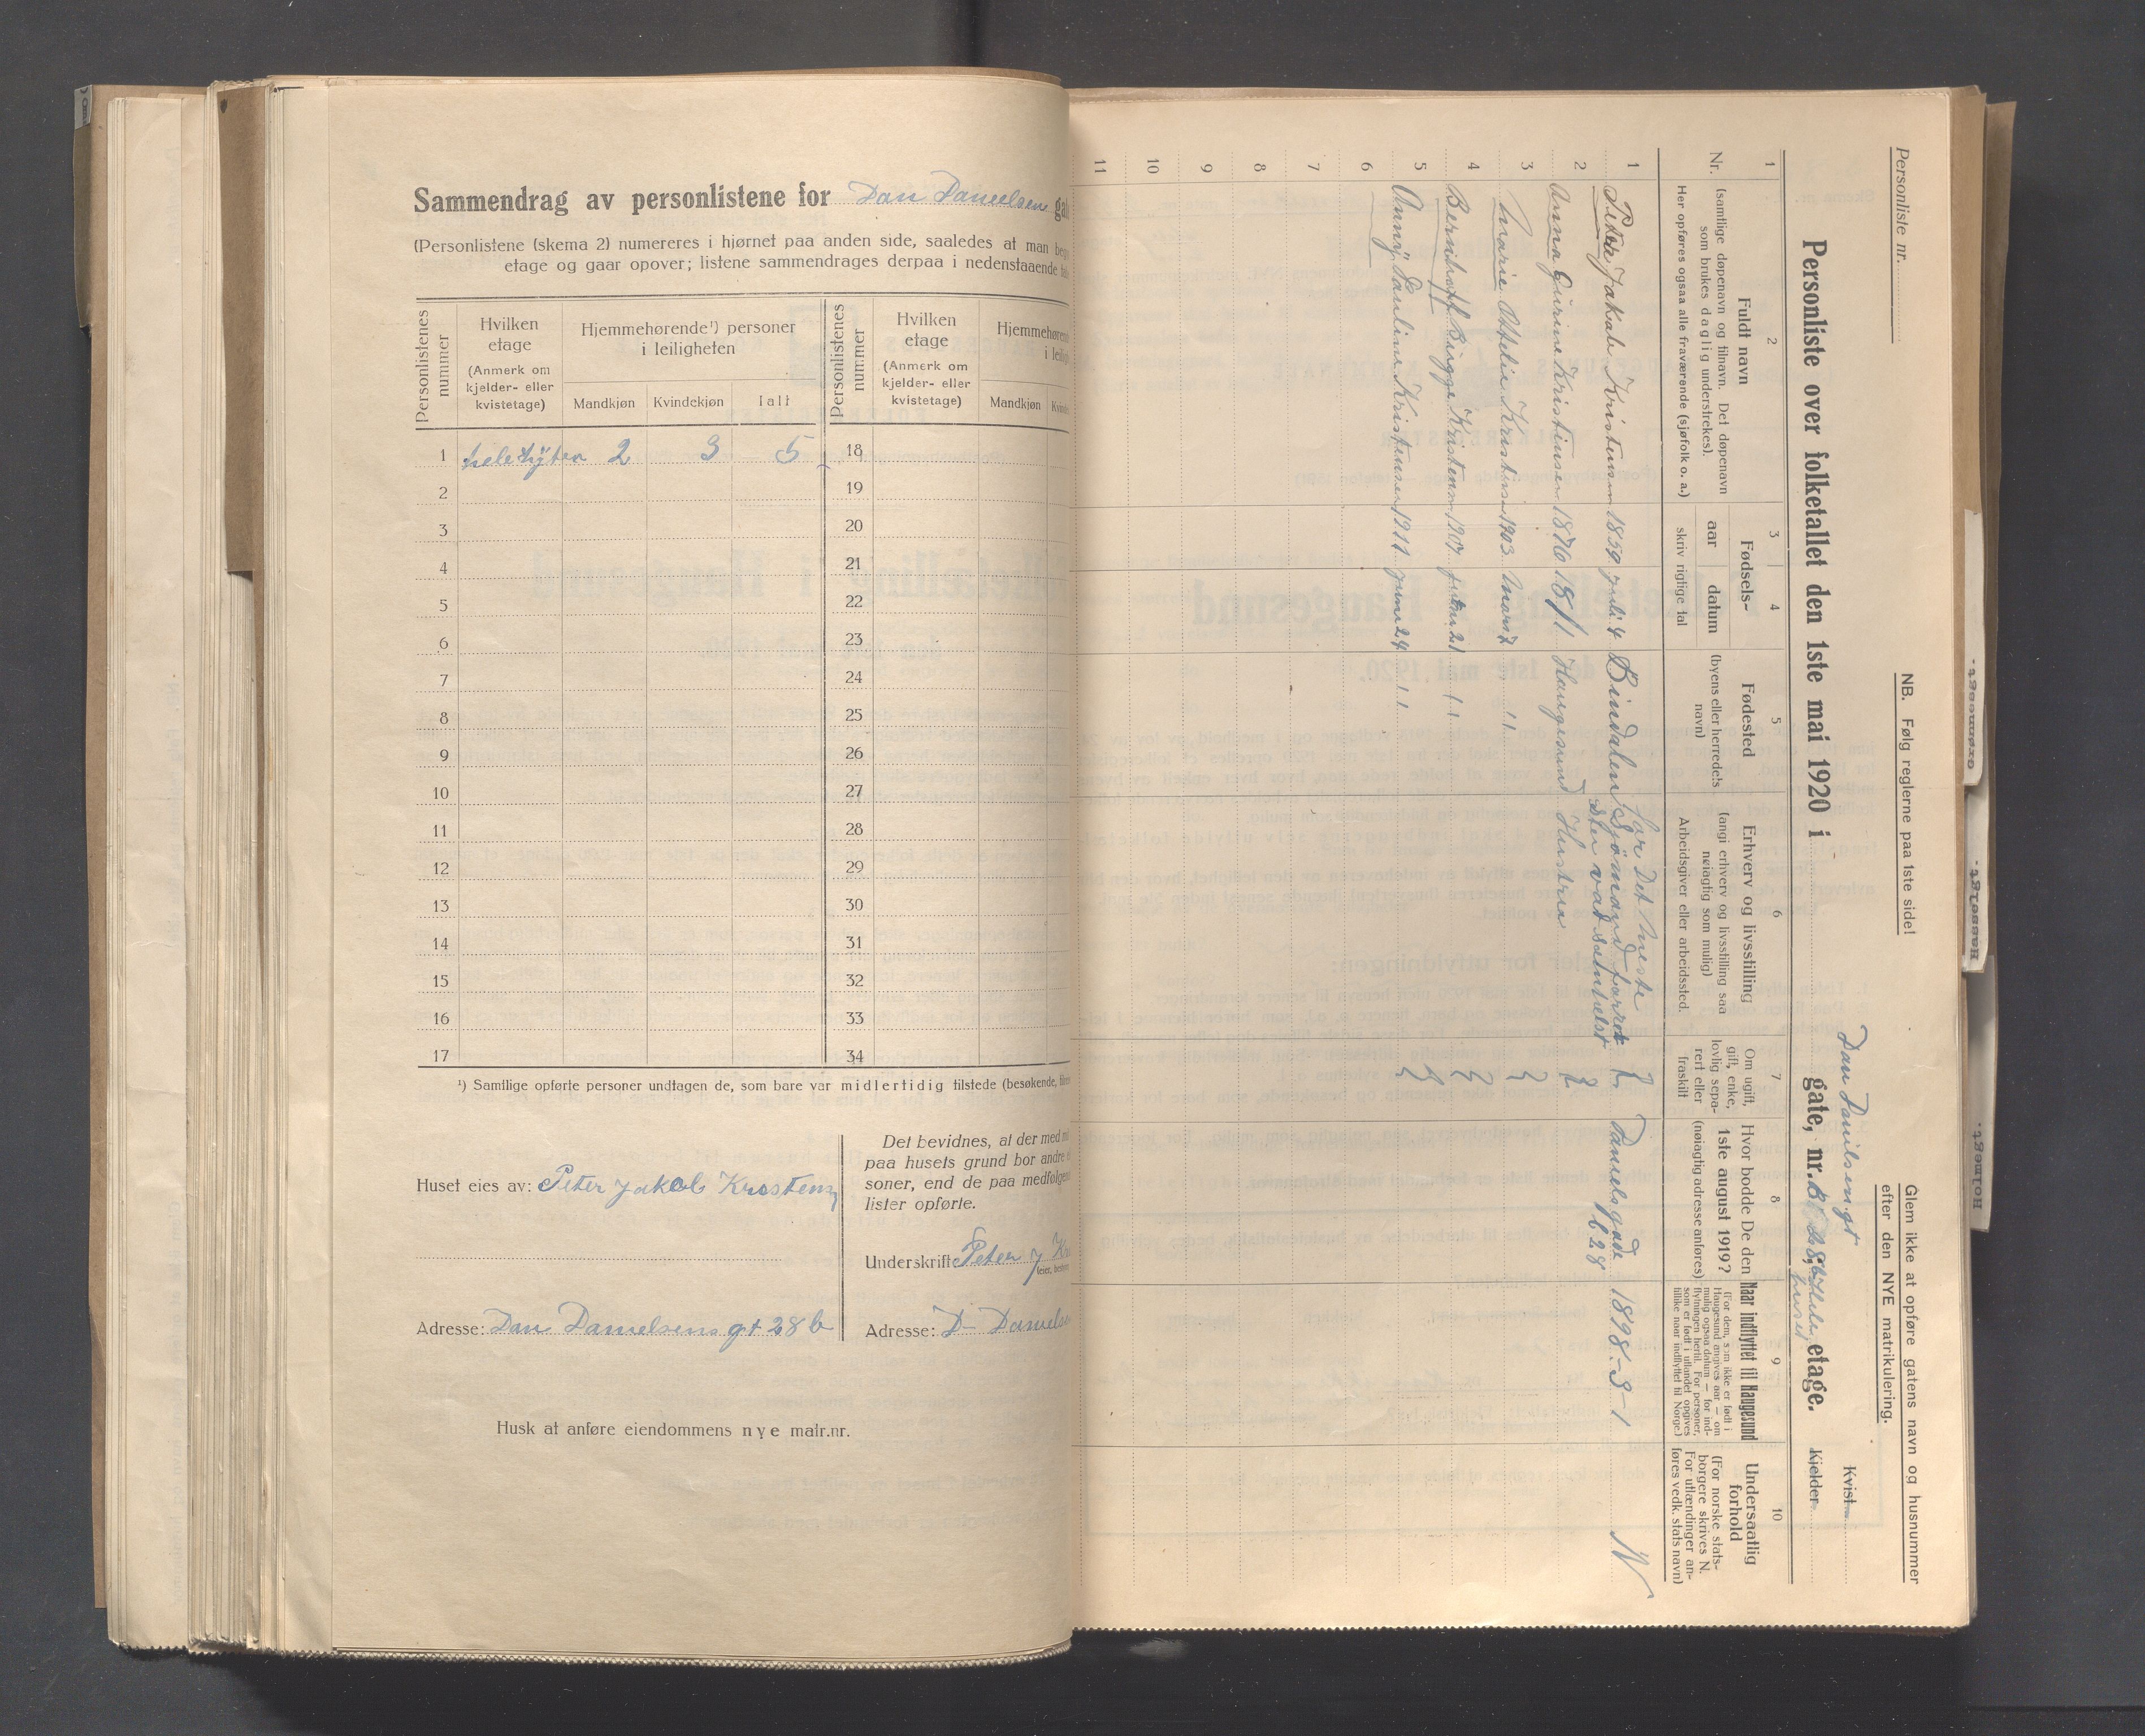 Sammendrag av personlistene for Dan Danielsens
(Personlistene (skema 2) numereres i hjørnet paa anden side, saaledes at man
etage og gaar opover; listene sammendrages derpaa i nedenstaaende
Personlistenes nummer
Hvilken etage
(Anmerk om kjelder- eller kvistetage)
Hjemmehørende¹) personer i leiligheten
Mandkjøn Kvindekjøn Ialt
Personlistenes nummer
Hvilken etage
(Anmerk om kjelder- eller kvistetage)
Mandkjøn
1 hele hytten 2 3 5 18
2 19
3 20
4 21
5 22
6 23
7 24
8 25
9 26
10 27
11 28
12 29
13 30
14 31
15 32
16 33
17 34
¹) Samtlige opførte personer undtagen de, som bare var midlertidig tilstede (besøkende,
Huset eies av: Peter Jakob
Adresse: Dan Danielsens gt 28 b
Det bevidnes, at der med
paa husets grund bor andre
soner, end de paa medfølgende
lister opførte.
Underskrift: Peter J
Adresse: D
Husk at anføre eiendommens nye matr.nr.
Personliste nr.
NB. Følg reglerne paa 1ste side!
Glem ikke at opføre gatens navn og husnummer
efter den NYE matrikulering.
Personliste over folketallet den 1ste mai 1920 i
gate, nr. B 28 b Hele huset etage.
Kvist
Kjelder
1 2 3 4 5 6 7 8 9 10
Nr.
Fuldt navn
(samtlige døpenavn og tilnavn. Det døpenavn
som brukes daglig understrekes).
Her opføres ogsaa alle fraværende (sjøfolk o. a.)
Fødsels-
aar datum
skriv rigtige tal
Fødested
(byens eller herredets navn)
Erhverv og livsstilling
(angi erhverv og livsstilling saa
nøiagtig som mulig)
Arbeidsgiver eller arbeidssted.
Om ugift, gift, enke, lovlig separert eller fraskilt
Hvor bodde De den
1ste august 1919?
(nøiagtig adresse anføres)
Naar indflyttet til Haugesund
(For dem, som ikke er født i
Haugesund angives aar — om
mulig ogsaa datum — for ind-
flytningen hertil. For personer,
som er født i utlandet opgives
tillike naar indflyttet til Norge.)
Undersaatlig forhold
(For norske stats-
borgere skrives N.
For utlændinger an-
føres vedk. stats navn)
1 Peter Jakob Kristensen 1859 juli 4 Bindalen Sjömand 1898-3-1 N
2 Anna Gurine Kristensen 1876 18/1 Haugesund Hustru
3 Marie Ottelie Kristensen 1903 Mars 7 "
4 Berntholf Bigge Kristensen 1907 21 "
5 Anny Pauline Kristensen 1911 juni 24 "
6
7
8
9
10
11
Grønnesgt.
Hasselgt.
Holmegt.